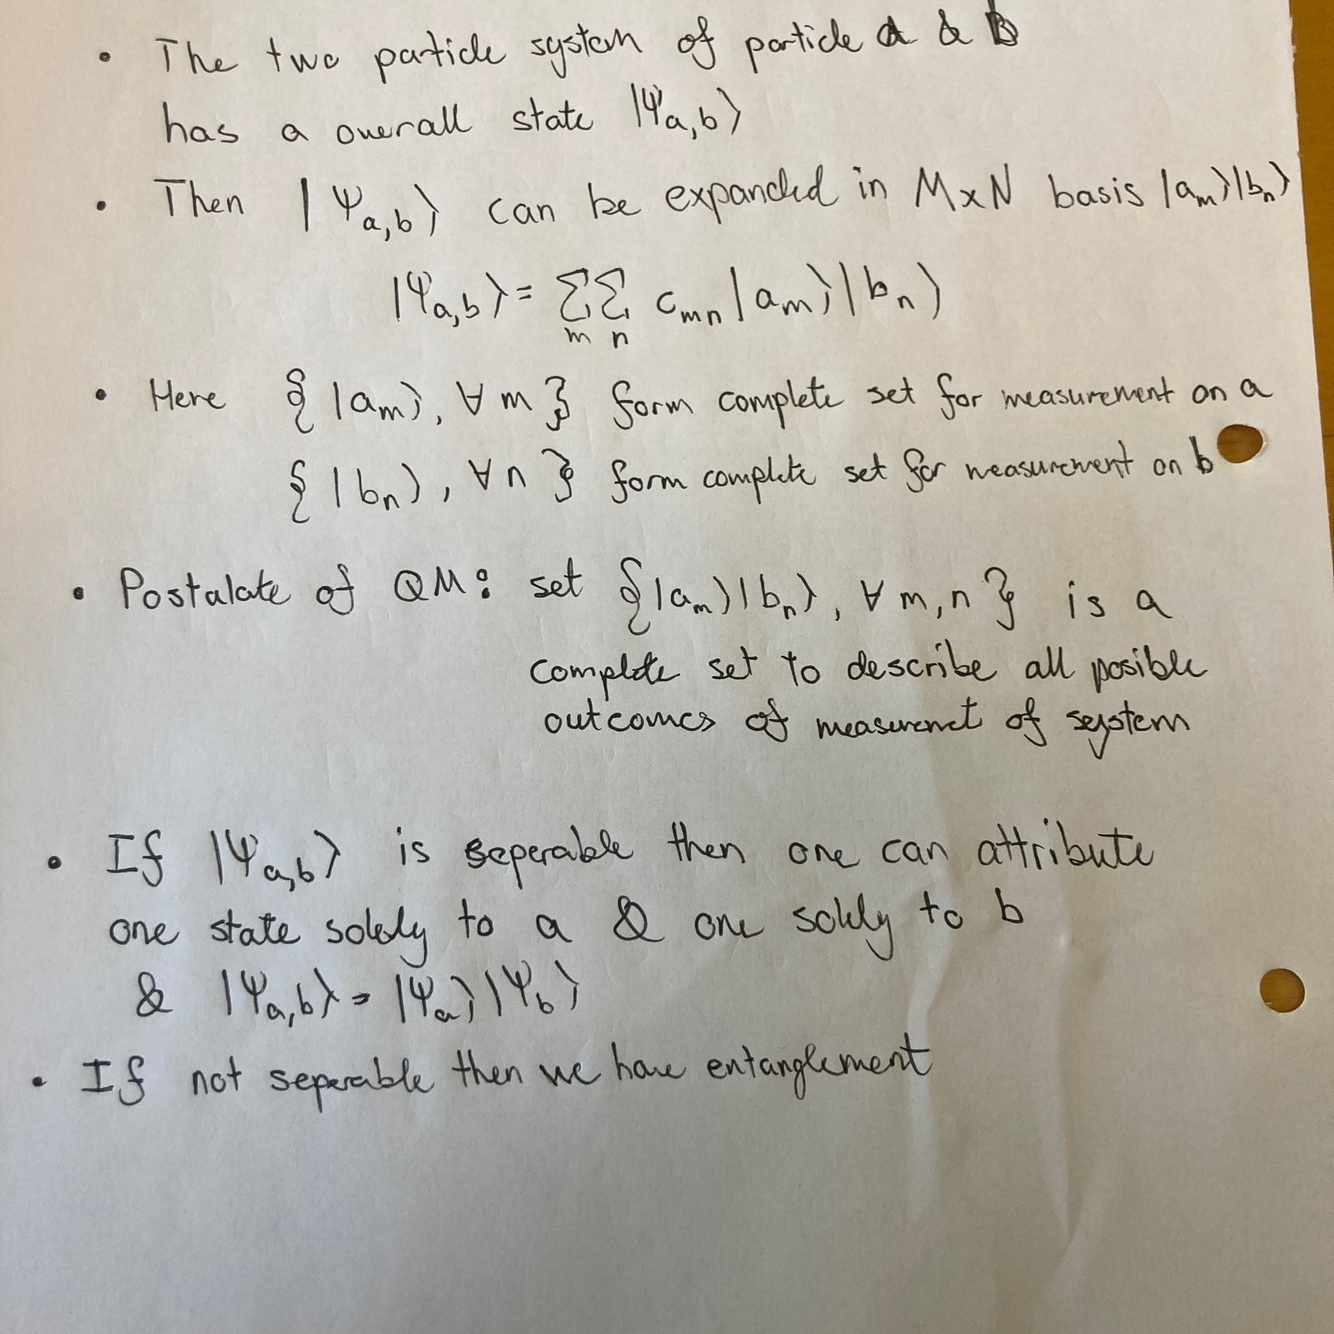 • The two particle system of particle a & b
has a overall state |Ψa,b⟩
• Then |Ψa,b⟩ can be expanded in M×N basis |am⟩|bn⟩
|Ψa,b⟩ = ∑m ∑n cmn |am⟩|bn⟩
• Here {|am⟩, ∀m} form complete set for measurement on a
{|bn⟩, ∀n} form complete set for measurement on b
• Postalate of QM: set {|am⟩|bn⟩, ∀m,n} is a
complete set to describe all posible
outcomes of measuremet of system
• If |Ψa,b⟩ is seperable then one can attribute
one state solely to a & one solely to b
& |Ψa,b⟩ = |Ψa⟩|Ψb⟩
• If not seperable then we have entanglement